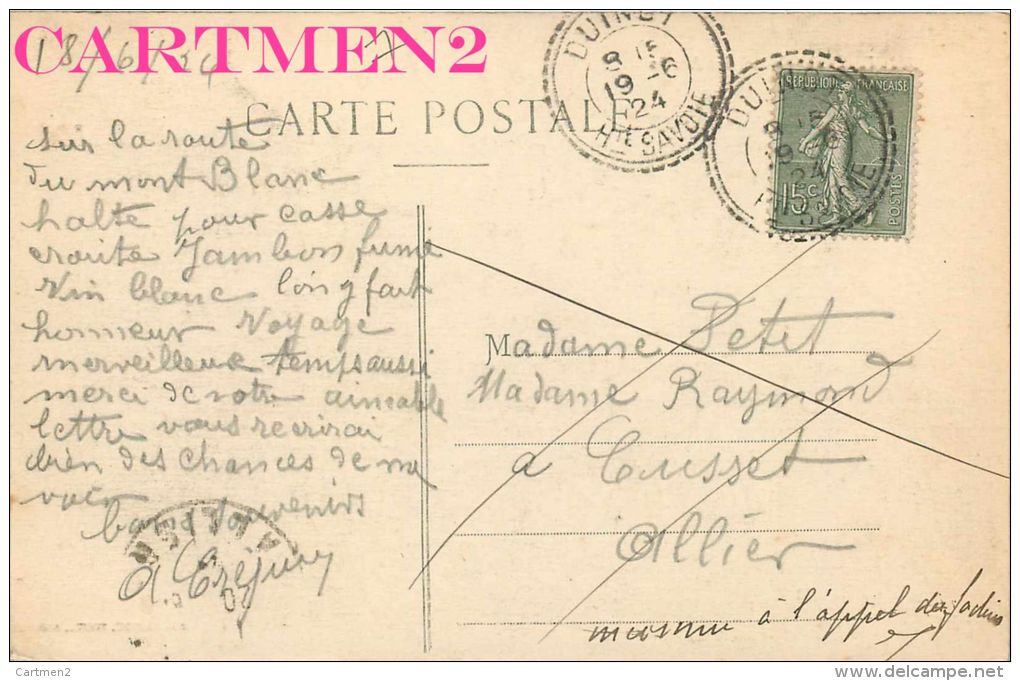 CARTMEN2
18/6/24
CARTE POSTALE
DUINGT
8 15
19 -6
24
Hte SAVOIE
DUINGT
8 15
19 -6
24
REPUBLIQUE FRANÇAISE
15c
POSTES
sur la route
du mont Blanc
halte pour casse
croute Jambon fumé
Vin blanc lon y fait
honneur Voyage
merveilleux temps aussi
merci de votre aimable
lettre vous recrirai
bien des chances de me
voir
bons souvenirs
Madame Petit
Madame Raymond
a Cusset
Allier
à l'appel des
Cartmen2
www.delcampe.net